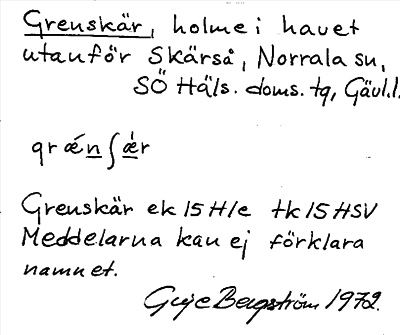 Grenskär, holme i havet
utanför Skärså, Norrala sn,
SÖ Häls. doms. tg, Gävl.l.
grǽn∫ǽr
Grenskär ek 15 H/e tk 15 HSV
Meddelarna kan ej förklara
namnet.
Bergström 1972.